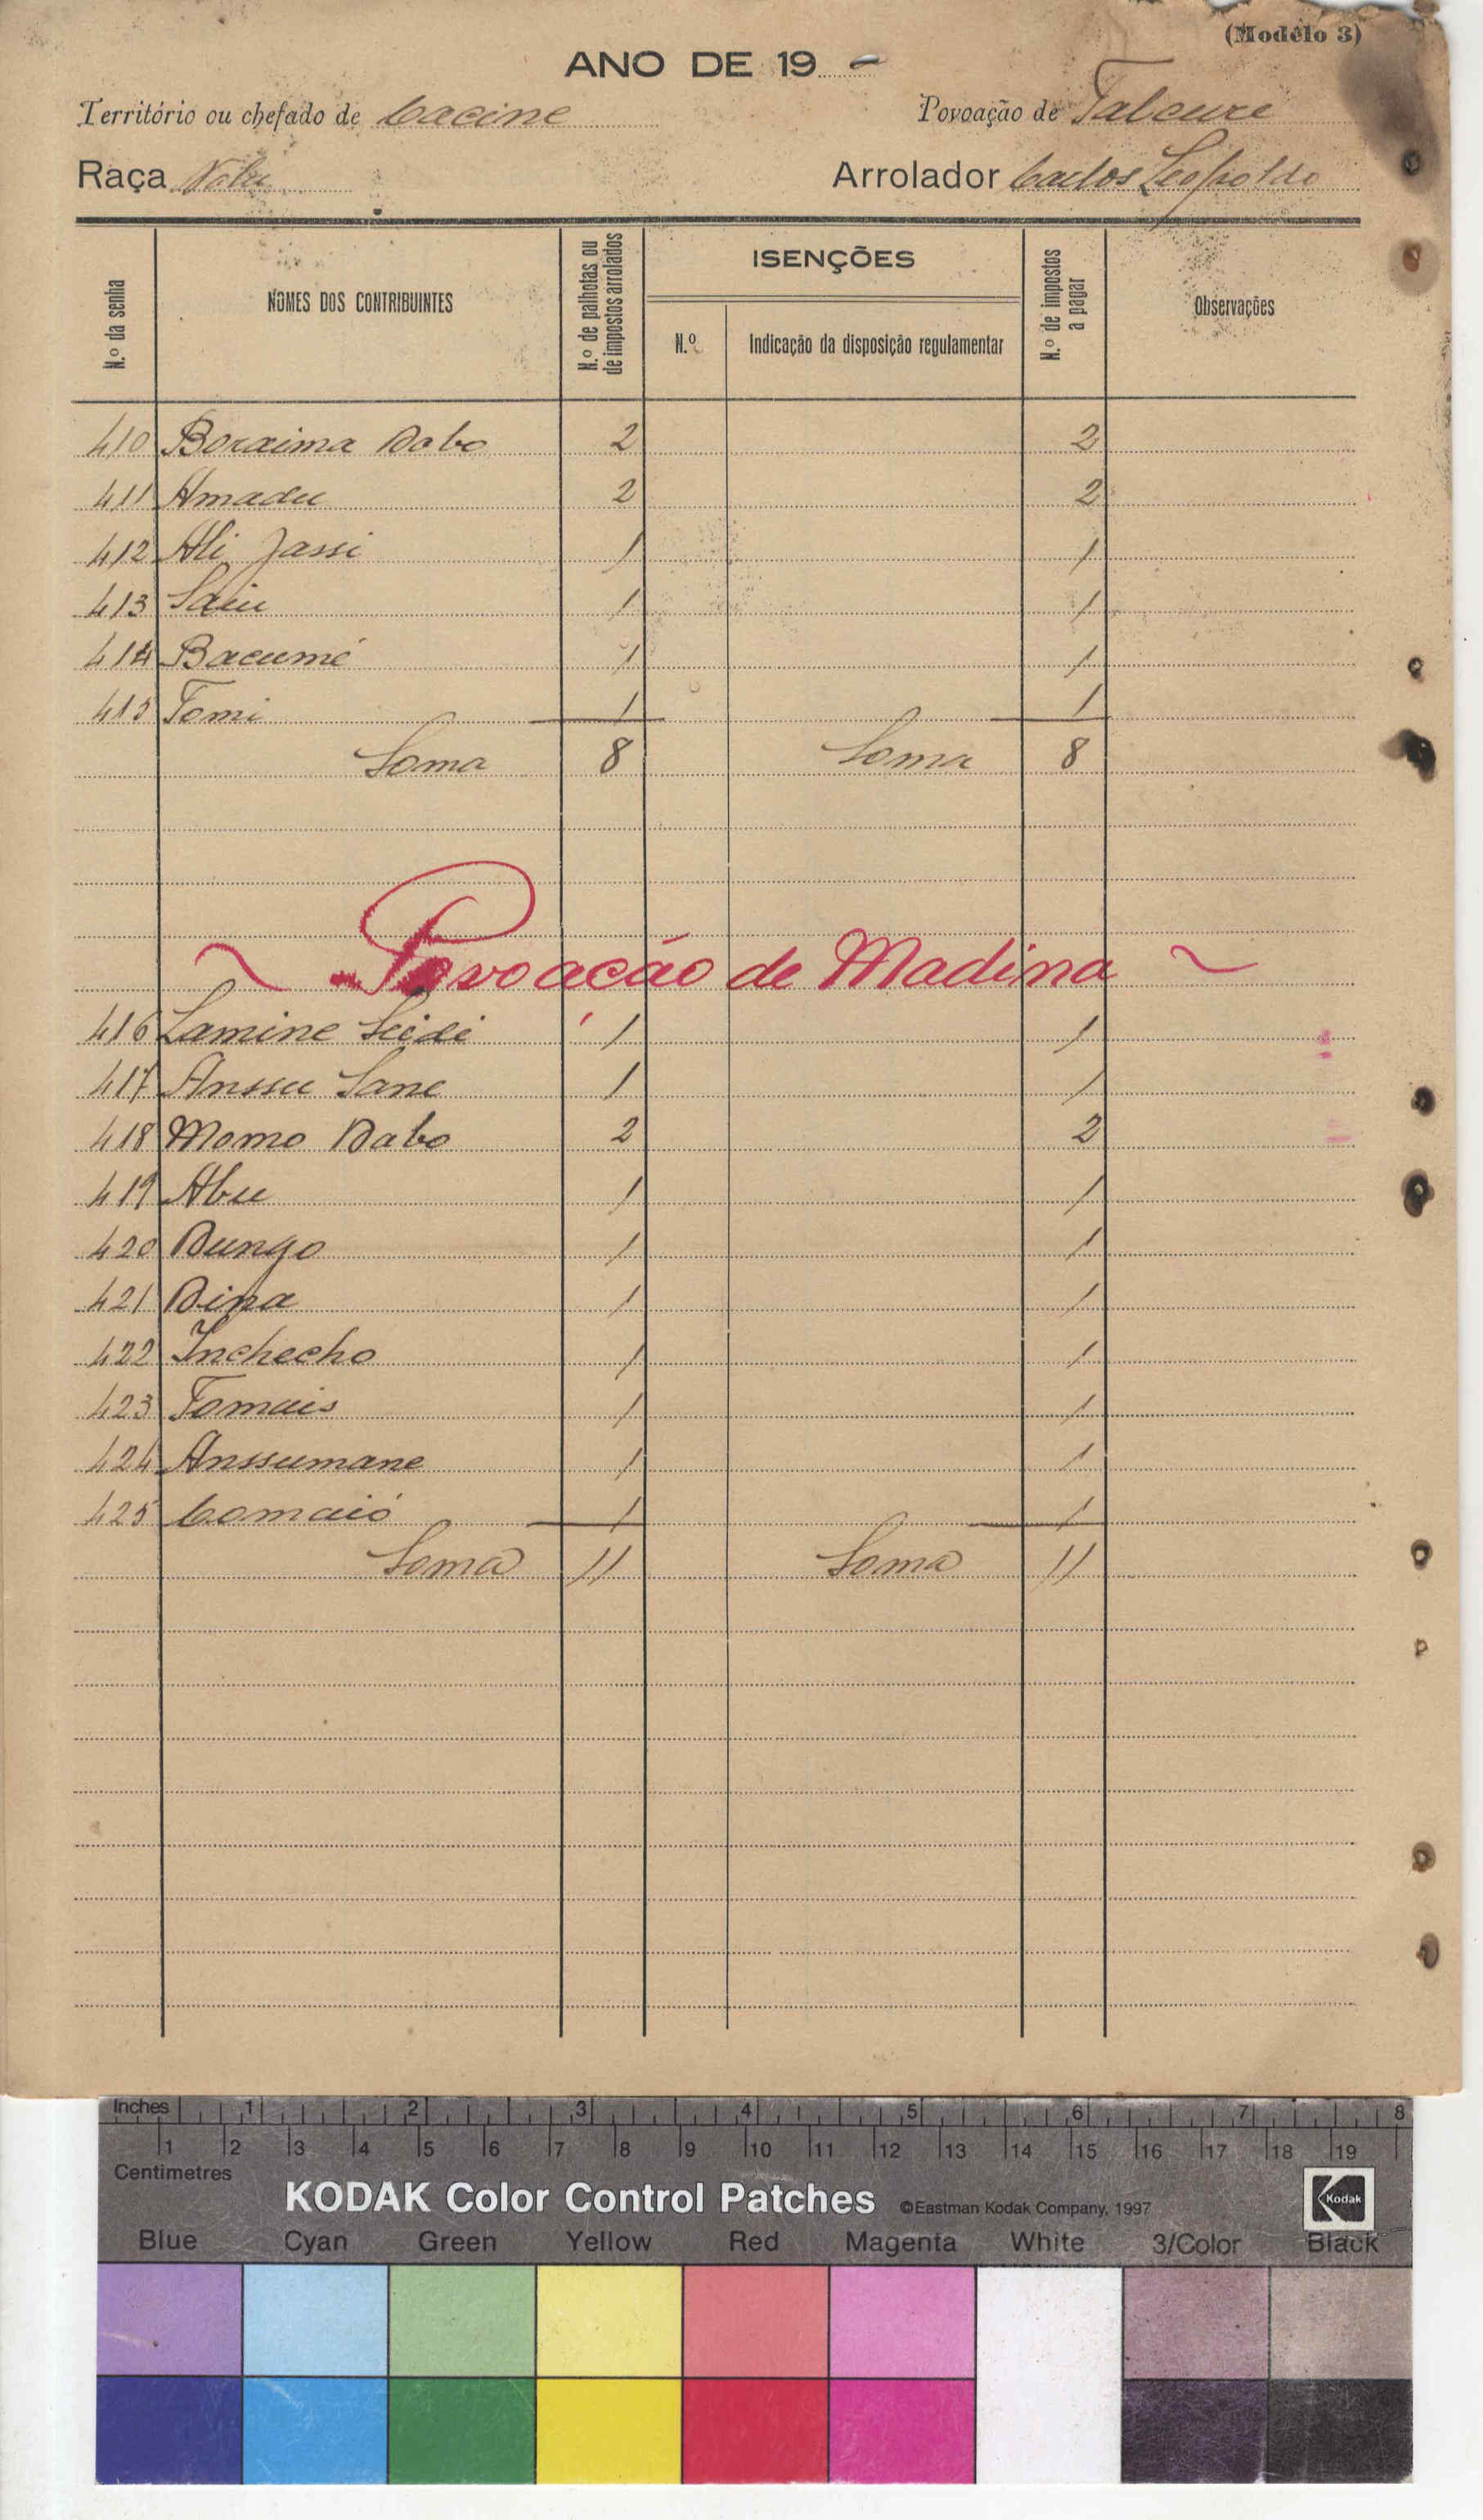 (Modêlo 3)
ANO DE 19 -
Território ou chefado de Cacine Povoação de Talcure
Raça Nalu Arrolador Carlos Leopoldo
N.º da senha NOMES DOS CONTRIBUINTES N.º de palhotas ou de impostos arrolados ISENÇÕES N.º de impostos a pagar Observações
N.º Indicação da disposição regulamentar
410 Boraima Dabo 2 2
411 Amadu 2 2
412 Ali Jassi 1 1
413 Saiu 1 1
414 Bacumé 1 1
415 Tomi 1 1
Soma 8 Soma 8
~ Povoacáo de Madina ~
416 Lamine Seidi 1 1
417 Anssu Sane 1 1
418 Momo Dabo 2 2
419 Abu 1 1
420 Dungo 1 1
421 Dina 1 1
422 Inchecho 1 1
423 Tomais 1 1
424 Anssumane 1 1
425 Comaió 1 1
Soma 11 Soma 11
Inches 1 2 3 4 5 6 7 8
1 2 3 4 5 6 7 8 9 10 11 12 13 14 15 16 17 18 19
Centimetres
KODAK Color Control Patches ©Eastman Kodak Company, 1997 Kodak
Blue Cyan Green Yellow Red Magenta White 3/Color Black